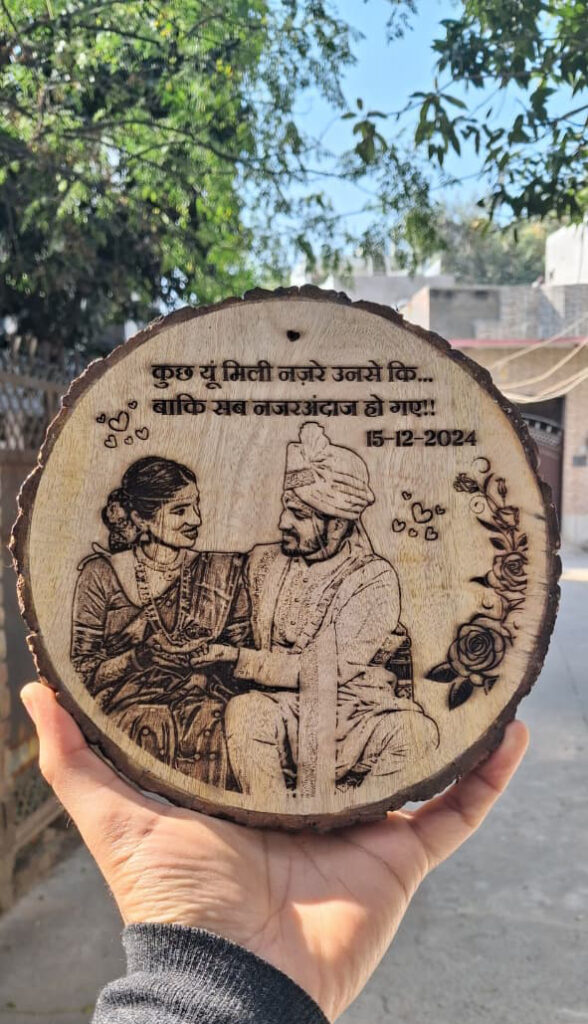 कुछ यूं मिली नज़रे उनसे कि...
बाकि सब नजरअंदाज हो गए!!
15-12-2024